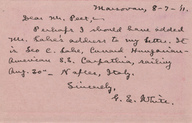 Marsovan, 8-7-11.
Dear Mr. Peet,-
Perhaps I should have added
Mr. Lake's address to my letter. It
is Leo C. Lake, Cunard Hungarian-
American S.S. Carpathia, sailing
Aug. 20 - Naples, Italy.
Sincerely,
G. E. White.